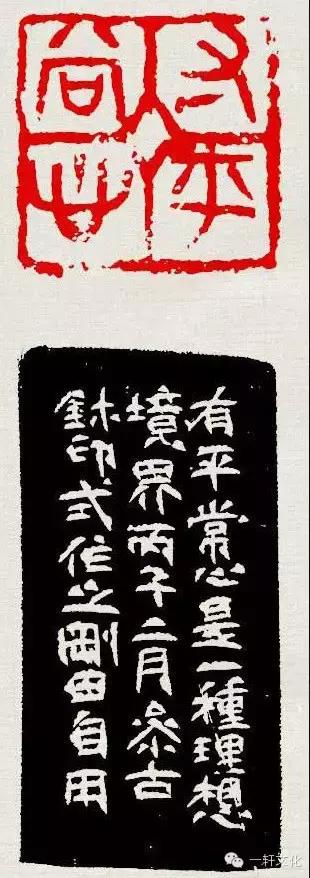 又平
尚心
有平常心是一種理想
境界丙子二月參古
鉥印式作之剛田自用
一轩文化